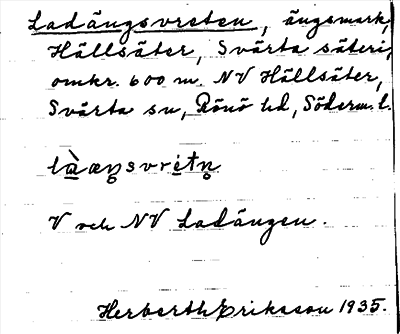 Ladängsvreten, ängsmark,
Hällsäter, Svärta säteri,
omkr. 600 m. NV Hällsäter,
Svärta sn, Rönö hd, Söderm. l.
V och NV Ladängen.
Herberth Eriksson 1935.